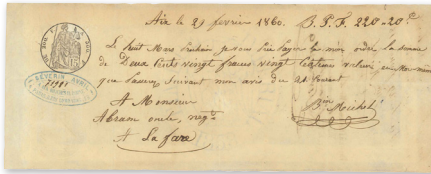 Aix le 21 février 1860. B.P.F. 220-20c
Le huit Mars prochain je vous prie payer à mon ordre la somme
de Deux Cents vingt francs vingt Centimes valeur en moi-même
que passerez suivant mon avis du 21 courant
Bin Michel
A Monsieur
Abram oncle, négt
A La fare
SÉVERIN